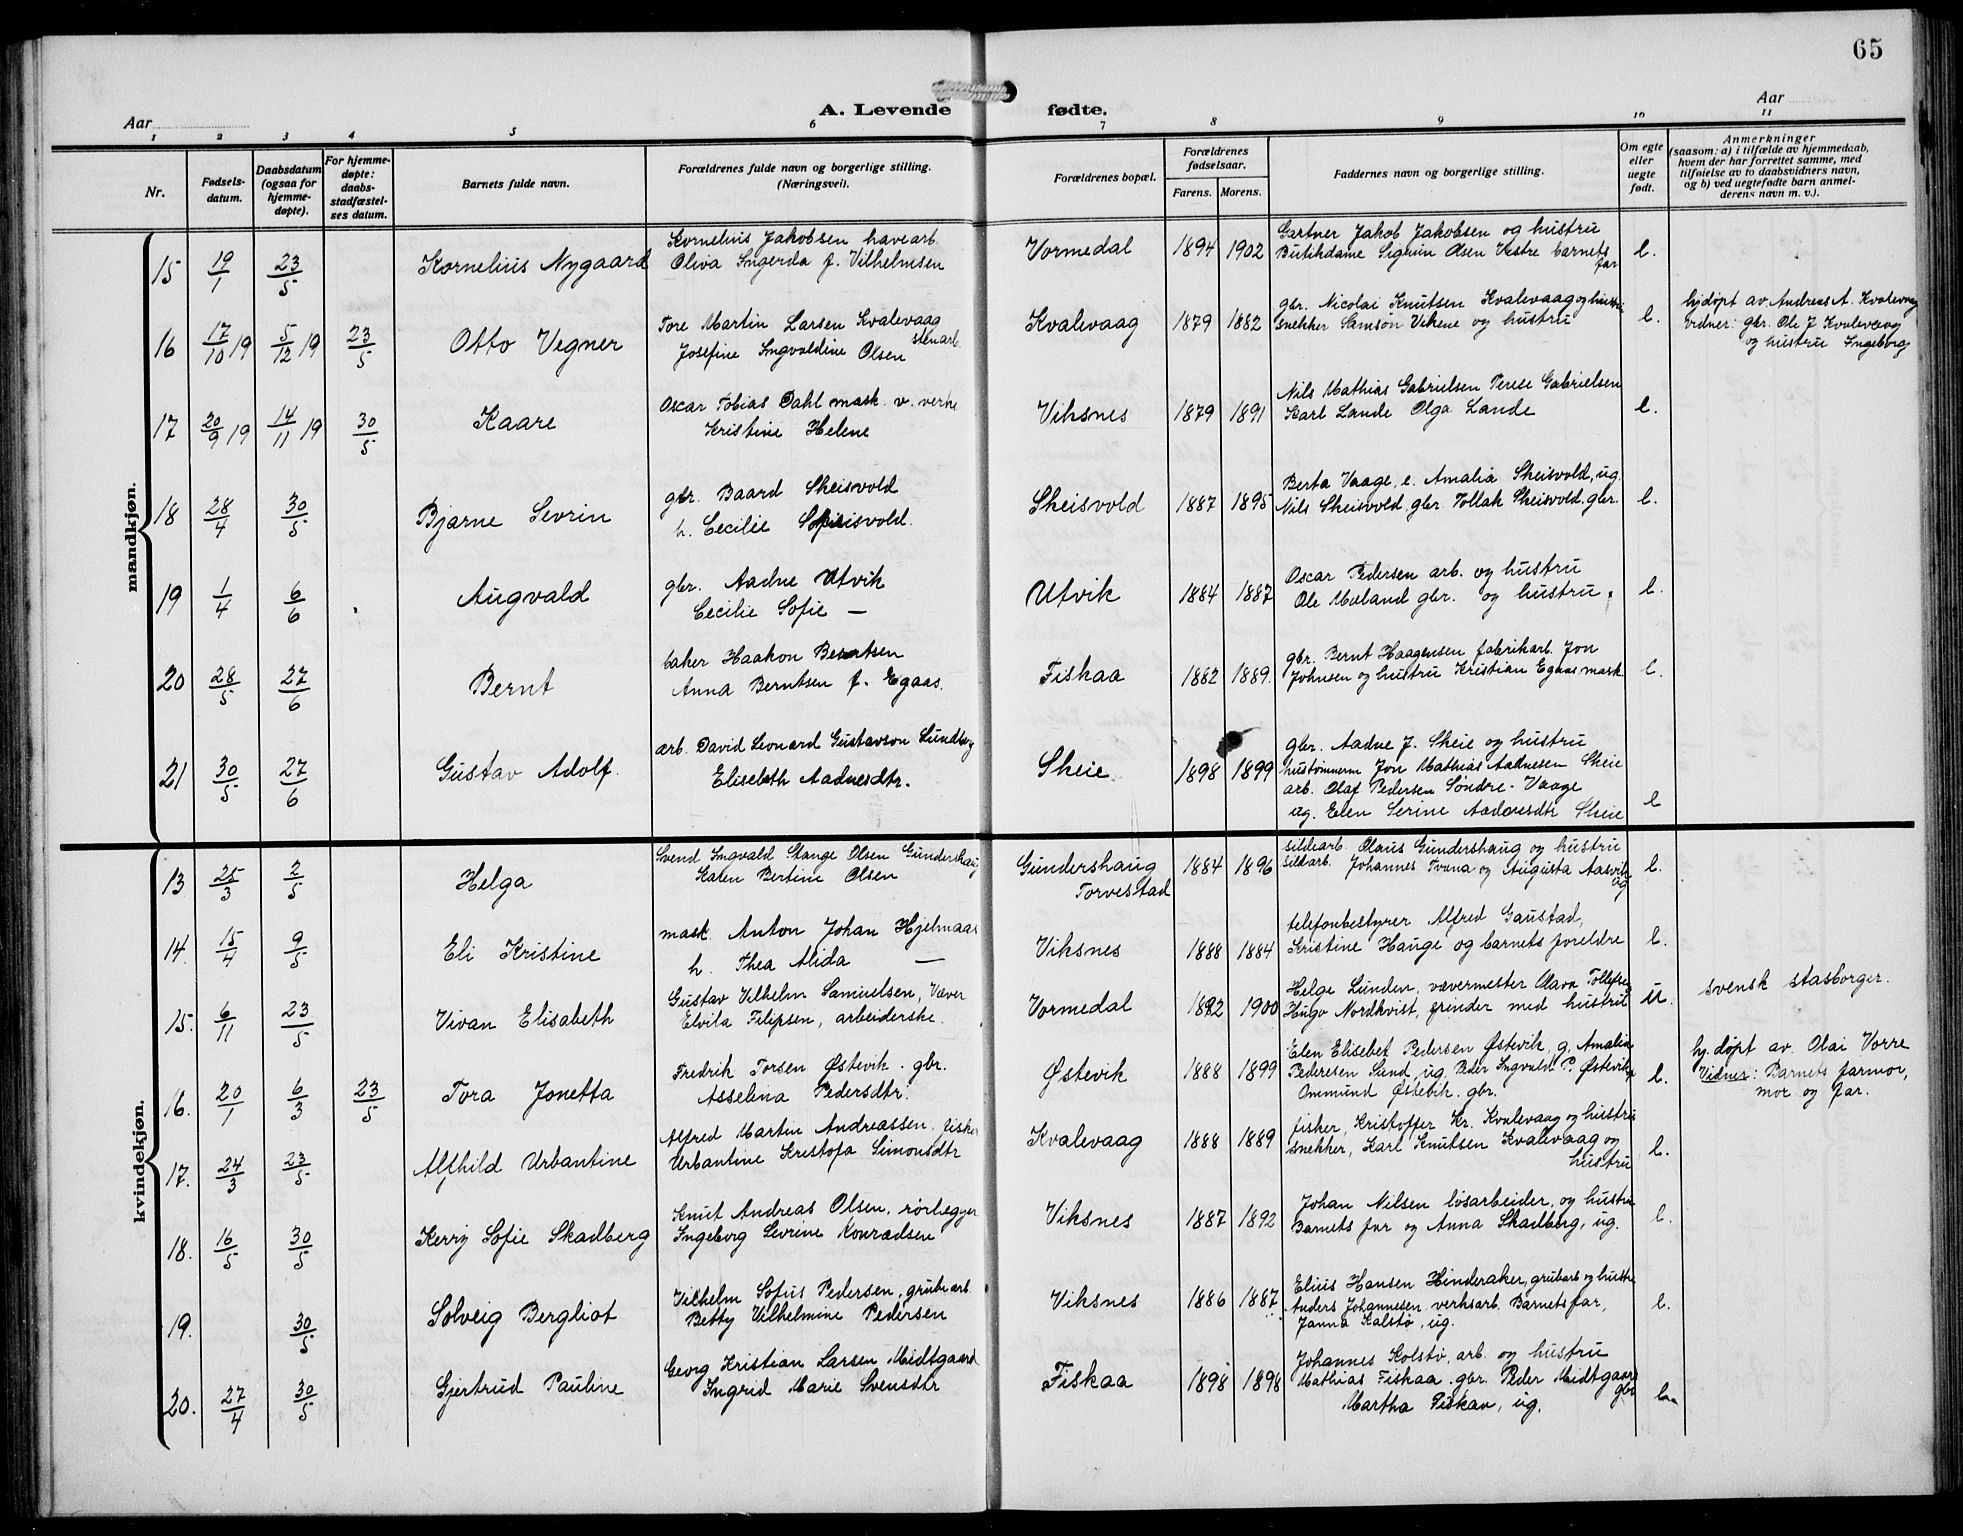 65
A. Levende fødte.
Aar
Aar
1 2 3 4 5 6 7 8 9 10 11
Nr.
Fødsels-
datum.
Daabsdatum
(ogsaa for
hjemme-
døpte).
For hjemme-
døpte:
daabs-
stadfæstel-
ses datum.
Barnets fulde navn.
Forældrenes fulde navn og borgerlige stilling.
(Næringsvei).
Forældrenes bopæl.
Forældrenes
fødselsaar.
Farens. Morens.
Faddernes navn og borgerlige stilling.
Om egte
eller
uegte
født.
Anmerkninger
(saasom: a) i tilfælde av hjemmedaab,
hvem der har forrettet samme, med
tilføielse av to daabsvidners navn,
og b) ved uegtefødte barn anmel-
derens navn m. v.).
mandkjøn.
15 19/1 23/5 Kornelius Nygaard
Kornelius Jakobsen havearb.
Oliva Ingerda f. Vilhelmsen
Vormedal 1894 1902
Gartner Jakob Jakobsen og hustru
Butikdame Sigrun Olsen Vestre barnets
far
e.
16 17/10 19 5/12 19 23/5 Otto Vegner
Tore Martin Larsen Kvalevaag
stenarb.
Josefine Ingvaldine Olsen
Kvalevaag 1879 1882
gbr. Nicolai Knutsen Kvalevaag og hustru
snekker Samson Vikene og hustru
e.
hj.døpt av Andreas A. Kvalevaag
vidner: gbr. Ole J Kvalevaag
og hustru Ingeborg
17 20/9 19 14/11 19 30/5 Kaare
Oscar Tobias Dahl mask. v. verke
Kristine Helene
Viksnes 1879 1891
Nils Mathias Gabrielsen Terese Gabrielsen
Karl Lande Olga Lande
e.
18 28/4 30/5 Bjarne Sevrin
gbr. Baard Skeisvold
h. Cecilie Skeisvold.
Skeisvold 1887 1895
Berta Vaage, e. Amalia Skeisvold, ug.
Nils Skeisvold, gbr. Tollak Skeisvold, gbr.
e.
19 1/4 6/6 Augvald
gbr. Aadne Utvik
Cecilie Sofie —
Utvik 1884 1887
Oscar Pedersen arb. og hustru
Ole Mæland gbr. og hustru.
e.
20 28/5 27/6 Bernt
baker Haakon Berntsen
Anna Berntsen f. Egaas.
Fiskaa 1882 1889.
gbr. Bernt Haagensen fabrikarb. Jon
Johnsen og hustru Kristian Egaas mask.
e.
21 30/5 27/6 Gustav Adolf.
arb. David Leonard Gustavson Lundberg
Elisebeth Aadnesdtr.
Skeie. 1898 1899
gbr. Aadne J. Skeie og hustru
hustømrerm Jon Mathias Aadnesen Skeie
arb. Olaf Pedersen Søndre-Vaage
ug. Elen Serine Aadnesdtr Skeie
e
kvindekjøn.
13 25/3 2/5 Helga
Svend Ingvald Stange Olsen Gundershaug
Karen Bertine Olsen
Gundershaug
Torvestad
1884 1896
sildearb. Olaus Gundershaug og hustru
sildarb. Johannes Tvana og Augusta Aasvik
ug
e.
14. 15/4 9/5 Eli Kristine
mask. Anton Johan Hjelmaas
h. Thea Alida —
Viksnes 1888 1884
telefonbestyrer Alfred Gaustad,
Kristine Hauge og barnets foreldre
e.
15. 6/11 23/5 Vivan Elisabeth
Gustav Vilhelm Samuelsen, Væver
Elvila Filipsen, arbeiderske.
Vormedal 1892 1900
Helge Lunden, vævermester Olava Tollefsen
Hugo Nordkvist, grinder med hustru
u.
svensk stasborger.
16. 20/1 6/3 23/5 Tora Jonetta
Fredrik Torsen Østevik. gbr.
Asselina Pedersdtr.
Østevik 1888 1899
Elen Elisebet Pedersen Østevik, g, Amalia
Pedersen Sund, ug. Peder Ingvald P. Østevik,
Ommund Østevik. gbr.
e.
hj. døpt av. Olai Vorre
Vidner: Barnets farmor,
mor og far.
17. 24/3 23/5 Alfhild Urbantine
Alfred Martin Andreassen, fisker
Urbantine Kristofa Simonsdtr
Kvalevaag 1888 1889
fisker, Kristoffer Kr. Kvalevaag og hustru
snekker, Karl Knutsen Kvalevaag og
hustru
e.
18. 16/5 30/5 Kerry Sofie Skadberg
Knut Andreas Olsen, rørlægger
Ingeborg Sevrine Konradsen
Viksnes 1887 1892
Johan Nilsen løsarbeider, og hustru
Barnets far og Anna Skadberg, ug.
e.
19. 30/5 Solveig Bergliot
Vilhelm Sofus Pedersen, grubearb.
Betty Vilhelmine Pedersen
Viksnes 1886 1887
Elius Hansen Hinderaker, grubarb og hustru
Anders Johannesen, verksarb. Barnets far,
Janna Kalstø, ug.
e.
20. 27/4 30/5 Gjertrud Pauline
Georg Kristian Larsen Midtgaard
Ingrid Marie Svensdtr
Fiskaa 1898 1898
Johannes Kolstø, arb. og hustru
Mathias Fiskaa. gbr. Peder Midtgaard
gbr
Martha Fiskaa, ug.